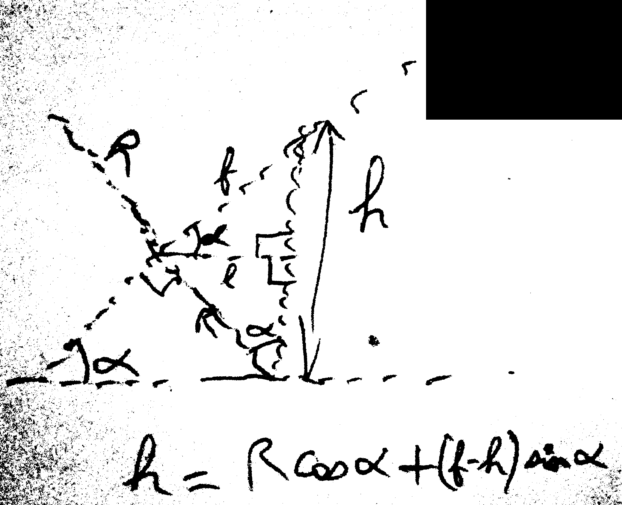 R
f
h
α
l
α
α
h = R cosα + (f-h) sinα